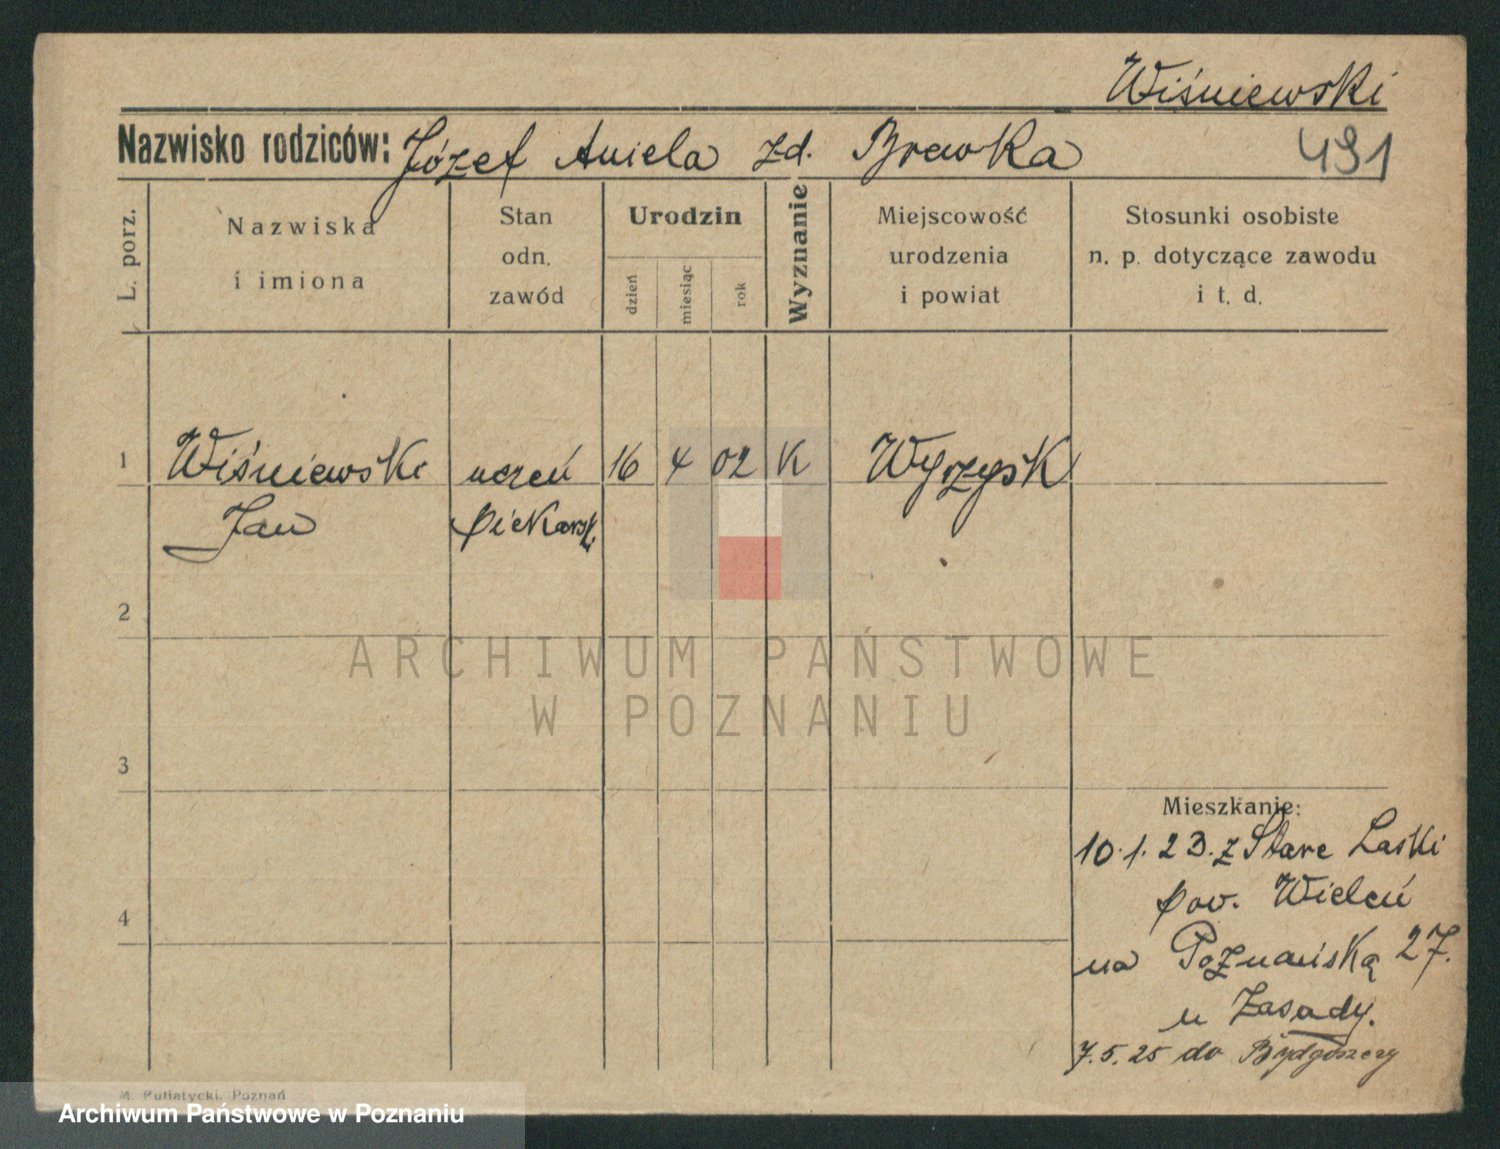 Wiśniewski
Nazwisko rodziców: Józef Aniela zd. Brewka
491
L. porz.
Nazwiska
i imiona
Stan
odn.
zawód
Urodzin
dzień
miesiąc
rok
Wyznanie
Miejscowość
urodzenia
i powiat
Stosunki osobiste
n. p. dotyczące zawodu
i t. d.
1 Wiśniewski uczeń 16 4 02 K Wyrzysk
Jan piekarsk.
2
ARCHIWUM PAŃSTWOWE
W POZNANIU
3
Mieszkanie:
10.1.23. z Stare Laski
pow. Wieleń
4
na Poznańską 27.
u Zasady.
7.5.25 do Bydgoszczy
M. Putiatycki, Poznań
Archiwum Państwowe w Poznaniu